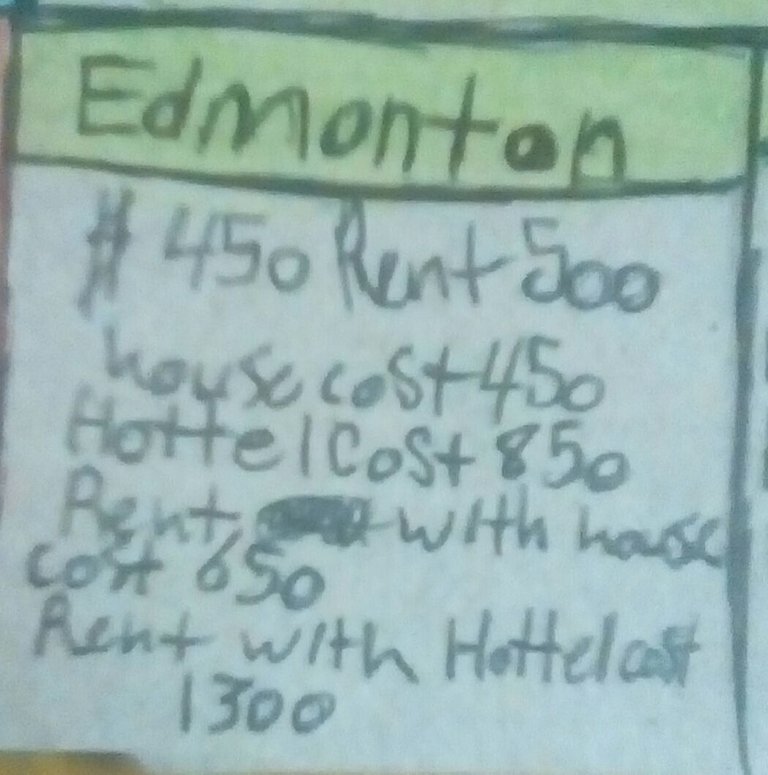 Edmonton
# 450 Rent 500
house cost 450
Hottel Cost 850
Rent with house
cost 650
Rent with Hottel cost
1300